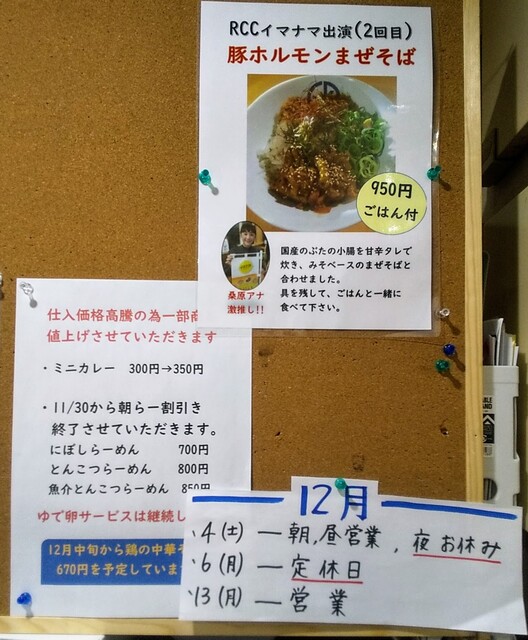 RCCイマナマ出演(2回目)
豚ホルモンまぜそば
950円
ごはん付
桑原アナ
激推し!!
国産のぶたの小腸を甘辛タレで
炊き、みそベースのまぜそばと
合わせました。
具を残して、ごはんと一緒に
食べて下さい。
仕入価格高騰の為一部商
値上げさせていただきます
・ミニカレー 300円→350円
・11/30から朝ら一割引き
終了させていただきます。
にぼしらーめん 700円
とんこつらーめん 800円
魚介とんこつらーめん 850円
ゆで卵サービスは継続し
12月中旬から鶏の中華そ
670円を予定していま
12月
・4(土) — 朝,昼営業, 夜お休み
・6(月) — 定休日
・13(月) — 営業